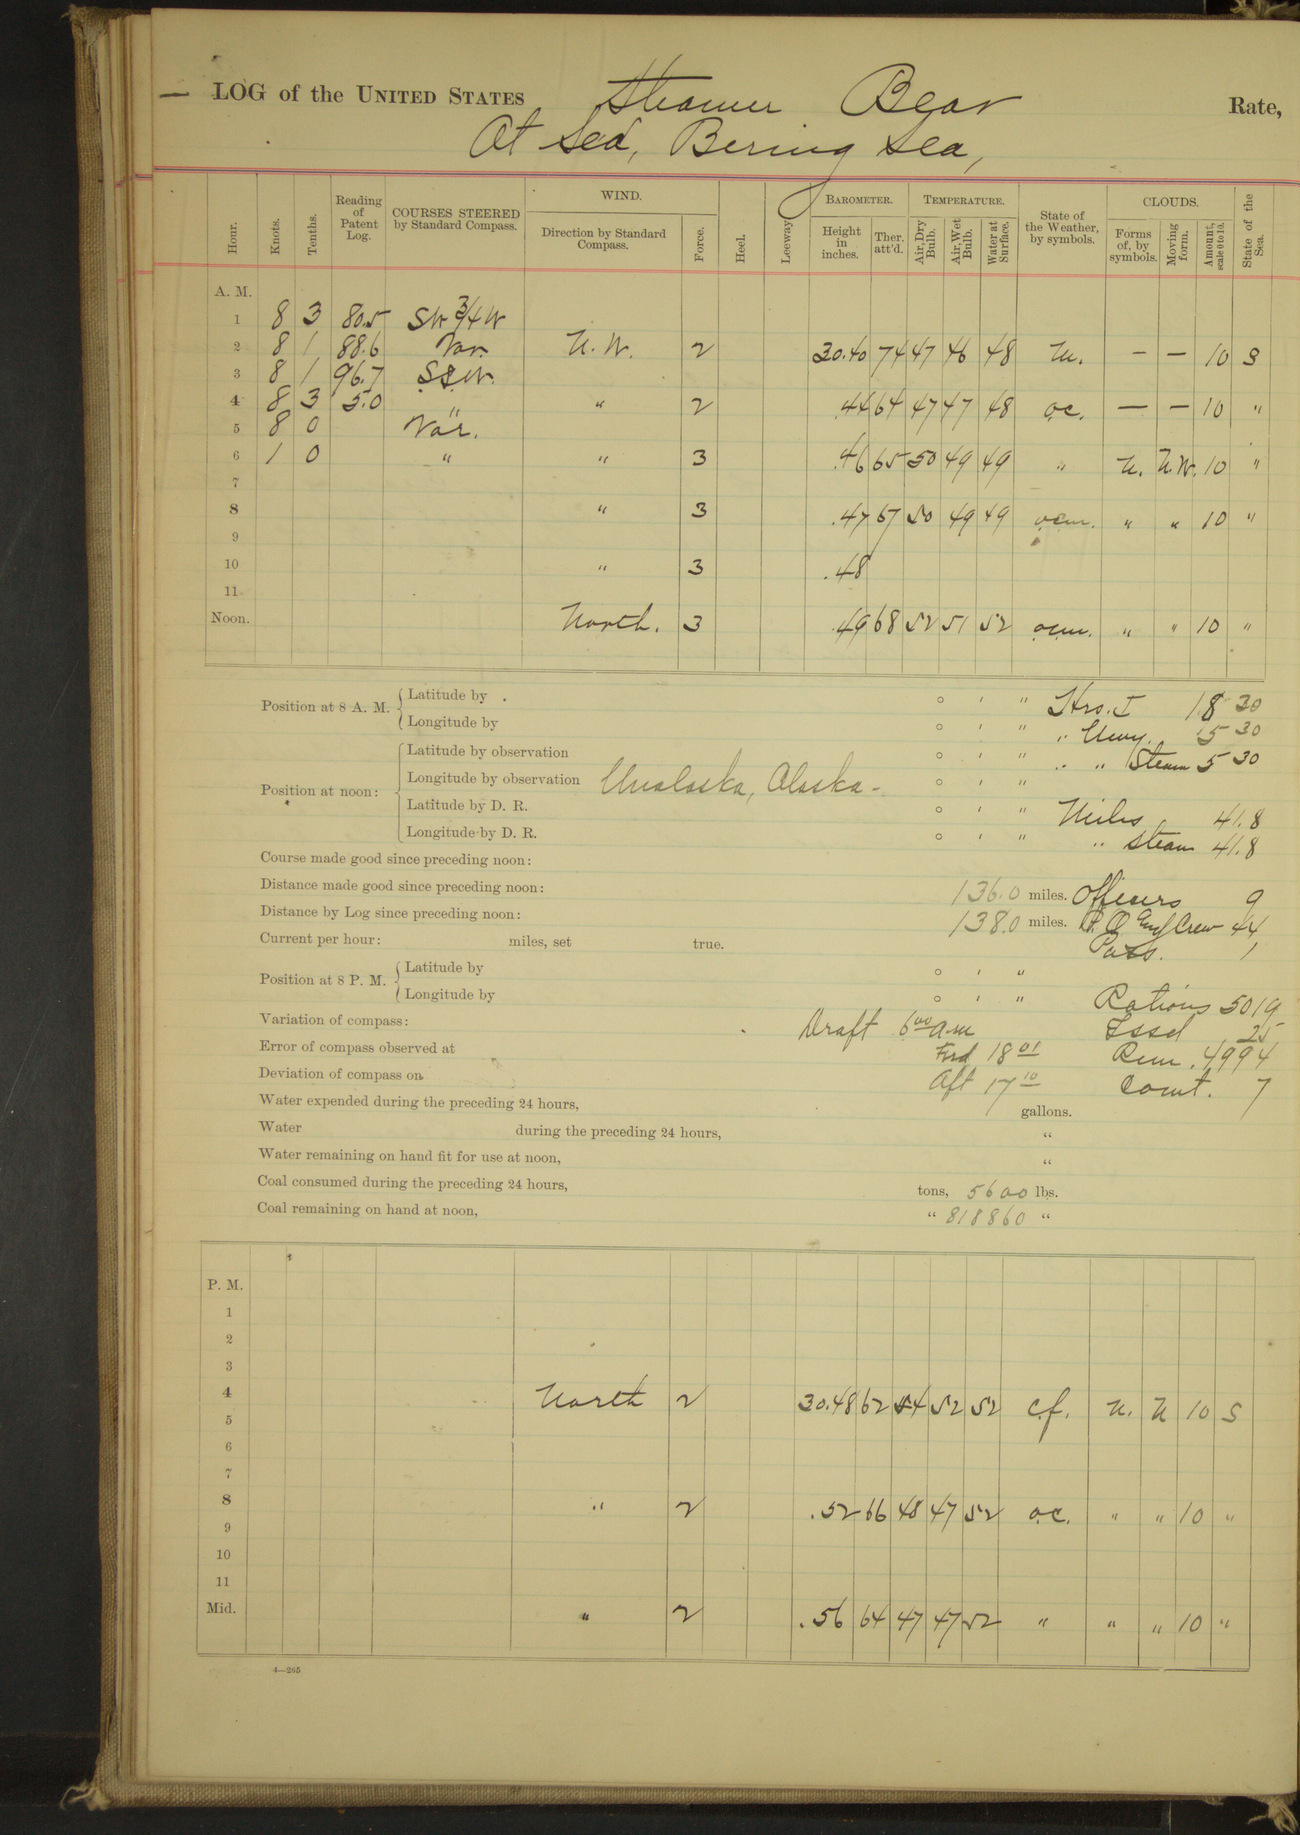 LOG of the UNITED STATES Steamer Bear Rate,
At Sea, Bering Sea,
Hour. Knots. Tenths. Reading of Patent Log. COURSES STEERED by Standard Compass. WIND. Direction by Standard Compass. Force. Heel. Leeway. BAROMETER. Height in inches. Ther. att'd. TEMPERATURE. Air, Dry Bulb. Air, Wet Bulb. Water at Surface. State of the Weather, by symbols. CLOUDS. Forms of, by symbols. Moving form. Amount, scale 0 to 10. State of the Sea.
A. M.
1 8 3 80.5 SW 3/4 W
2 8 1 88.6 Var. N. W. 2 30.40 74 47 46 48 m. — — 10 S
3 8 1 96.7 S&W.
4 8 3 5.0 " " 2 .44 64 47 47 48 oc. — — 10 "
5 8 0 Var.
6 1 0 " " 3 .46 65 50 49 49 " N. N.W. 10 "
7
8 " 3 .47 67 50 49 49 ocm. " " 10 "
9
10 " 3 .48
11
Noon. North. 3 .49 68 52 51 52 ocm. " " 10 "
Position at 8 A. M. Latitude by ° ' " Hrs. 18 30
Longitude by ° ' " " Unwy. 5 30
Position at noon: Latitude by observation ° ' " " " Steam 5 30
Longitude by observation Unalaska, Alaska - ° ' "
Latitude by D. R. ° ' " Miles 41.8
Longitude by D. R. ° ' " " Steam 41.8
Course made good since preceding noon:
Distance made good since preceding noon: 136.0 miles. Officers 9
Distance by Log since preceding noon: 138.0 miles. P. O. Crew 44
Current per hour: miles, set true. Pass. 1
Position at 8 P. M. Latitude by ° ' "
Longitude by ° ' " Rations 5019
Variation of compass: Draft 6 00 am Issd 25
Error of compass observed at Ford 18 01 Rem. 4994
Deviation of compass on Aft 17 10 Comt. 7
Water expended during the preceding 24 hours, gallons.
Water during the preceding 24 hours, "
Water remaining on hand fit for use at noon, "
Coal consumed during the preceding 24 hours, tons, 5600 lbs.
Coal remaining on hand at noon, " 818860 "
P. M.
1
2
3
4 North 2 30.48 62 54 52 52 c.f. N. N 10 S
5
6
7
8 " 2 .52 66 48 47 52 oc. " " 10 "
9
10
11
Mid. " 2 .56 64 47 47 52 " " " 10 "
4—265